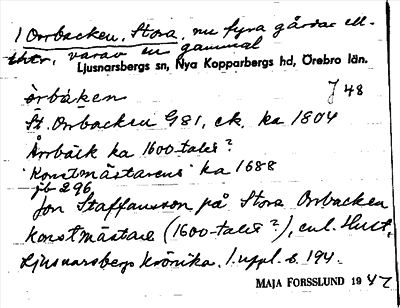 1 Orrbacken, Stora, nu fyra gårdar ell.
varav en gammal
Ljusnarsbergs sn, Nya Kopparbergs hd, Örebro län.
orbaken J 48
St. Orrbacken G 81, ek. ka 1804
Årrbäck ka 1600-talet?
Konstmästarens ka 1688
jb 296
Jon Staffansson på Stora Orrbacken
konstmästare (1600-talet?), enl. Hult,
Ljusnarsbergs krönika, 1. uppl. s. 194.
MAJA FORSSLUND 1947